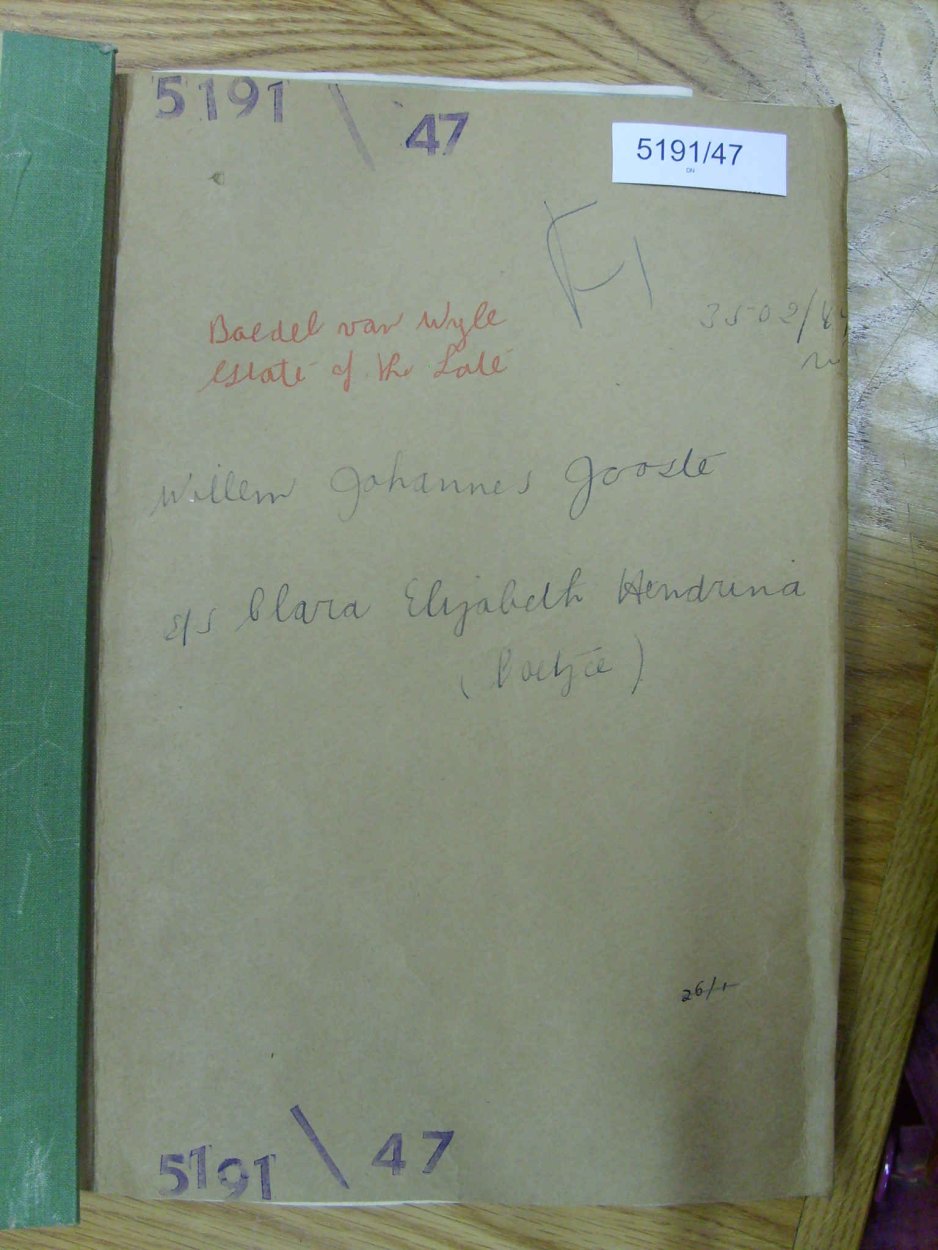 5191 \ 47
5191/47
DN
F1
3502/4
Boedel van Wyle
Estate of the Late
Willem Johannes Jooste
e/s Clara Elizabeth Hendrina
(Coetzee)
26/1
5191 \ 47